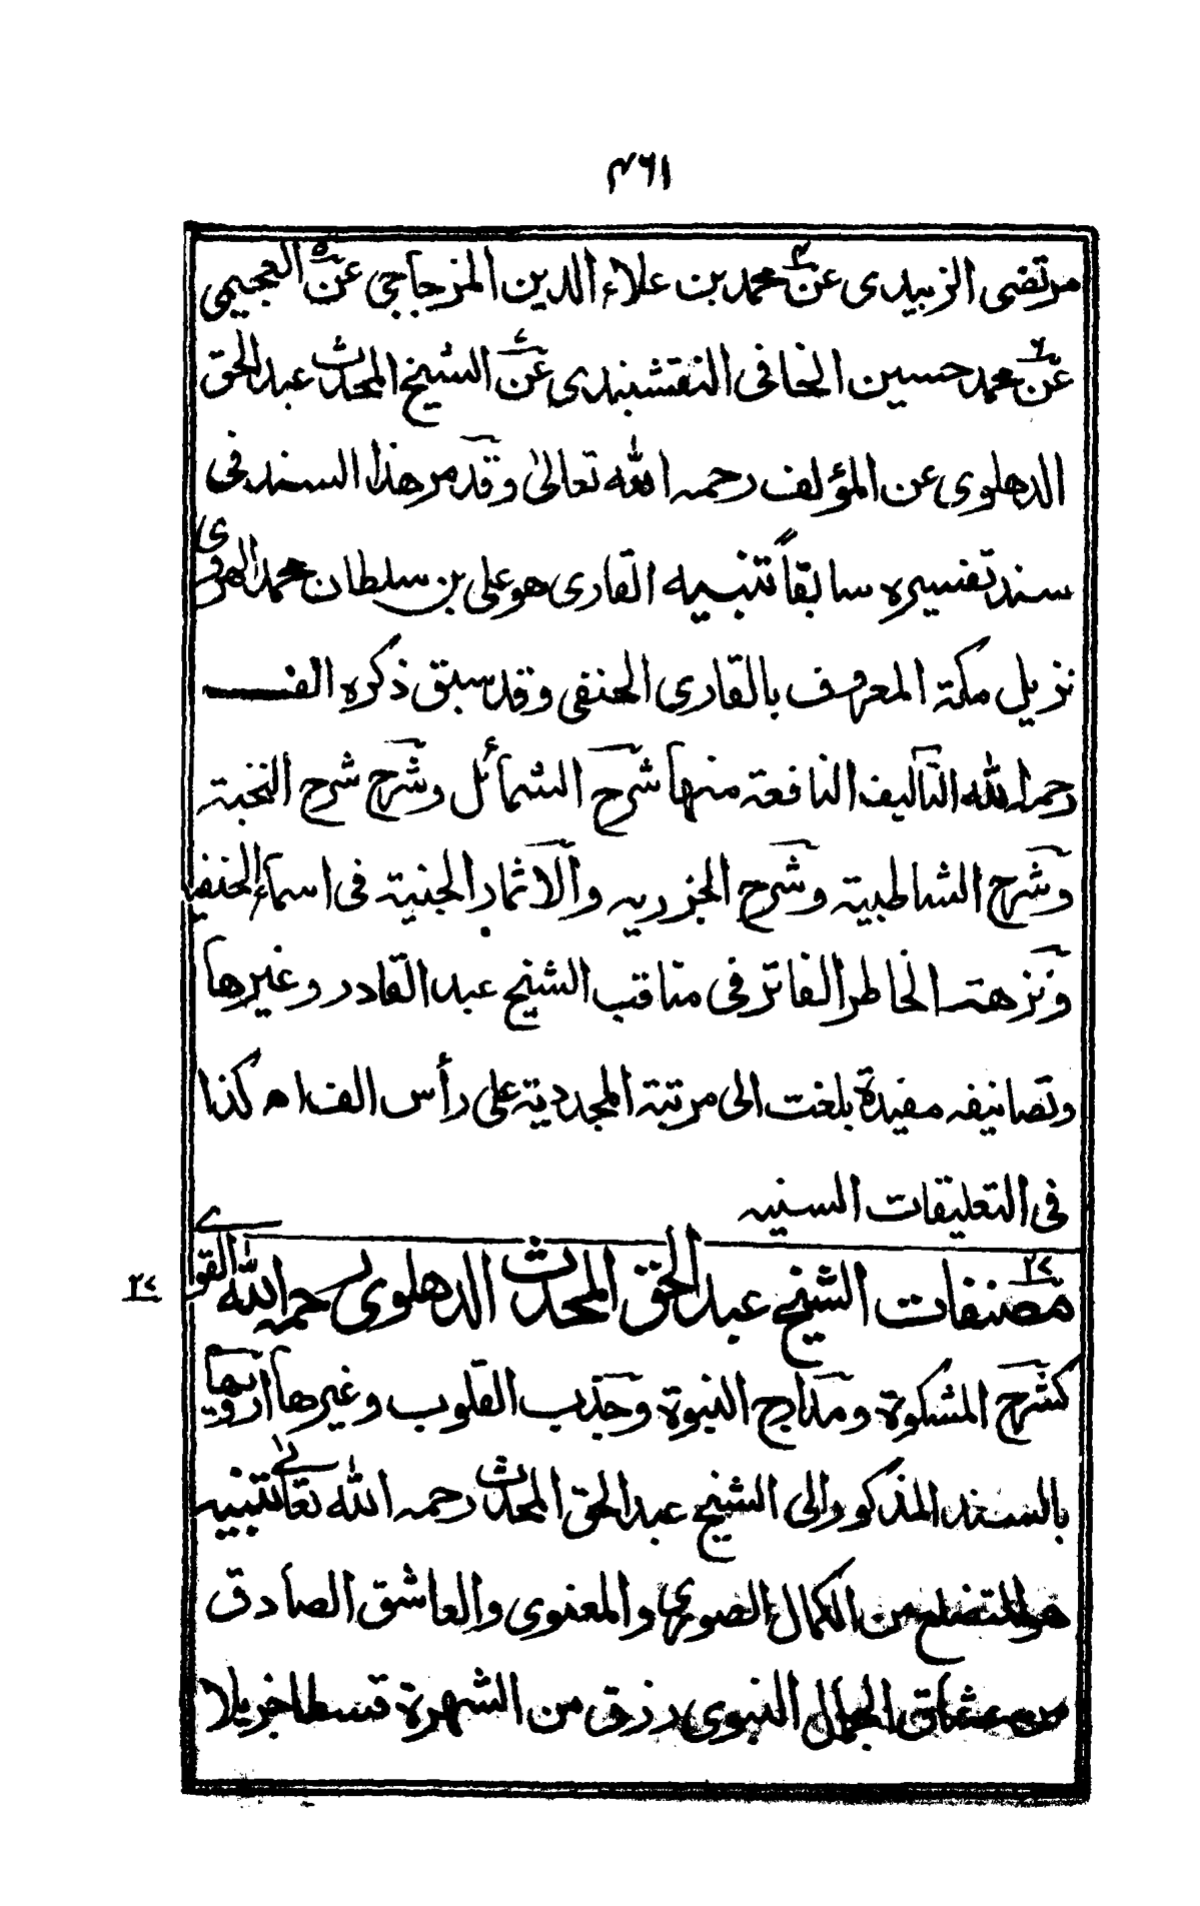 ۴۶۱
مرتضى الزبيدى عن۴ محمد بن علاء الدين المزجاجي عن۵ العجيمي
عن۶ محمد حسين الخافى النقشبندى عن۷ الشيخ المحدث عبد الحق
الدهلوى عن المؤلف رحمہ الله تعالىٰ وقد مر هذا السند فى
سند تفسيره سابقاً تنبيه القارى هو على بن سلطان محمد الهروى
نزيل مكة المعروف بالقارى الحنفى وقد سبق ذكره الف
رحمہ الله التآليف النافعة منها شرح الشمائل وشرح شرح النخبة
وشرح الشاطبية وشرح الجزريه والآثمار الجنية فى اسماء الحنفيه
ونزهة الخاطر الفاتر فى مناقب الشيخ عبد القادر وغيرها
وتصانيفه مفيدة بلغت الى مرتبة المجددية على رأس الف اه كذا
فى التعليقات السنيہ
۲۷ مصنفات الشيخ عبد الحق المحدث الدهلوى رحمہ الله القوى
۲۷
كشرح المشكوة ومدارج النبوة وجذب القلوب وغيرها ارويها
بالسند المذكور الى الشيخ عبد الحق المحدث رحمہ الله تعالى تنبيه
هو المتضلع من الكمال الصورى والمعنوى والعاشق الصادق
من عشاق الجمال النبوى رزق من الشهرة قسطا جزيلا